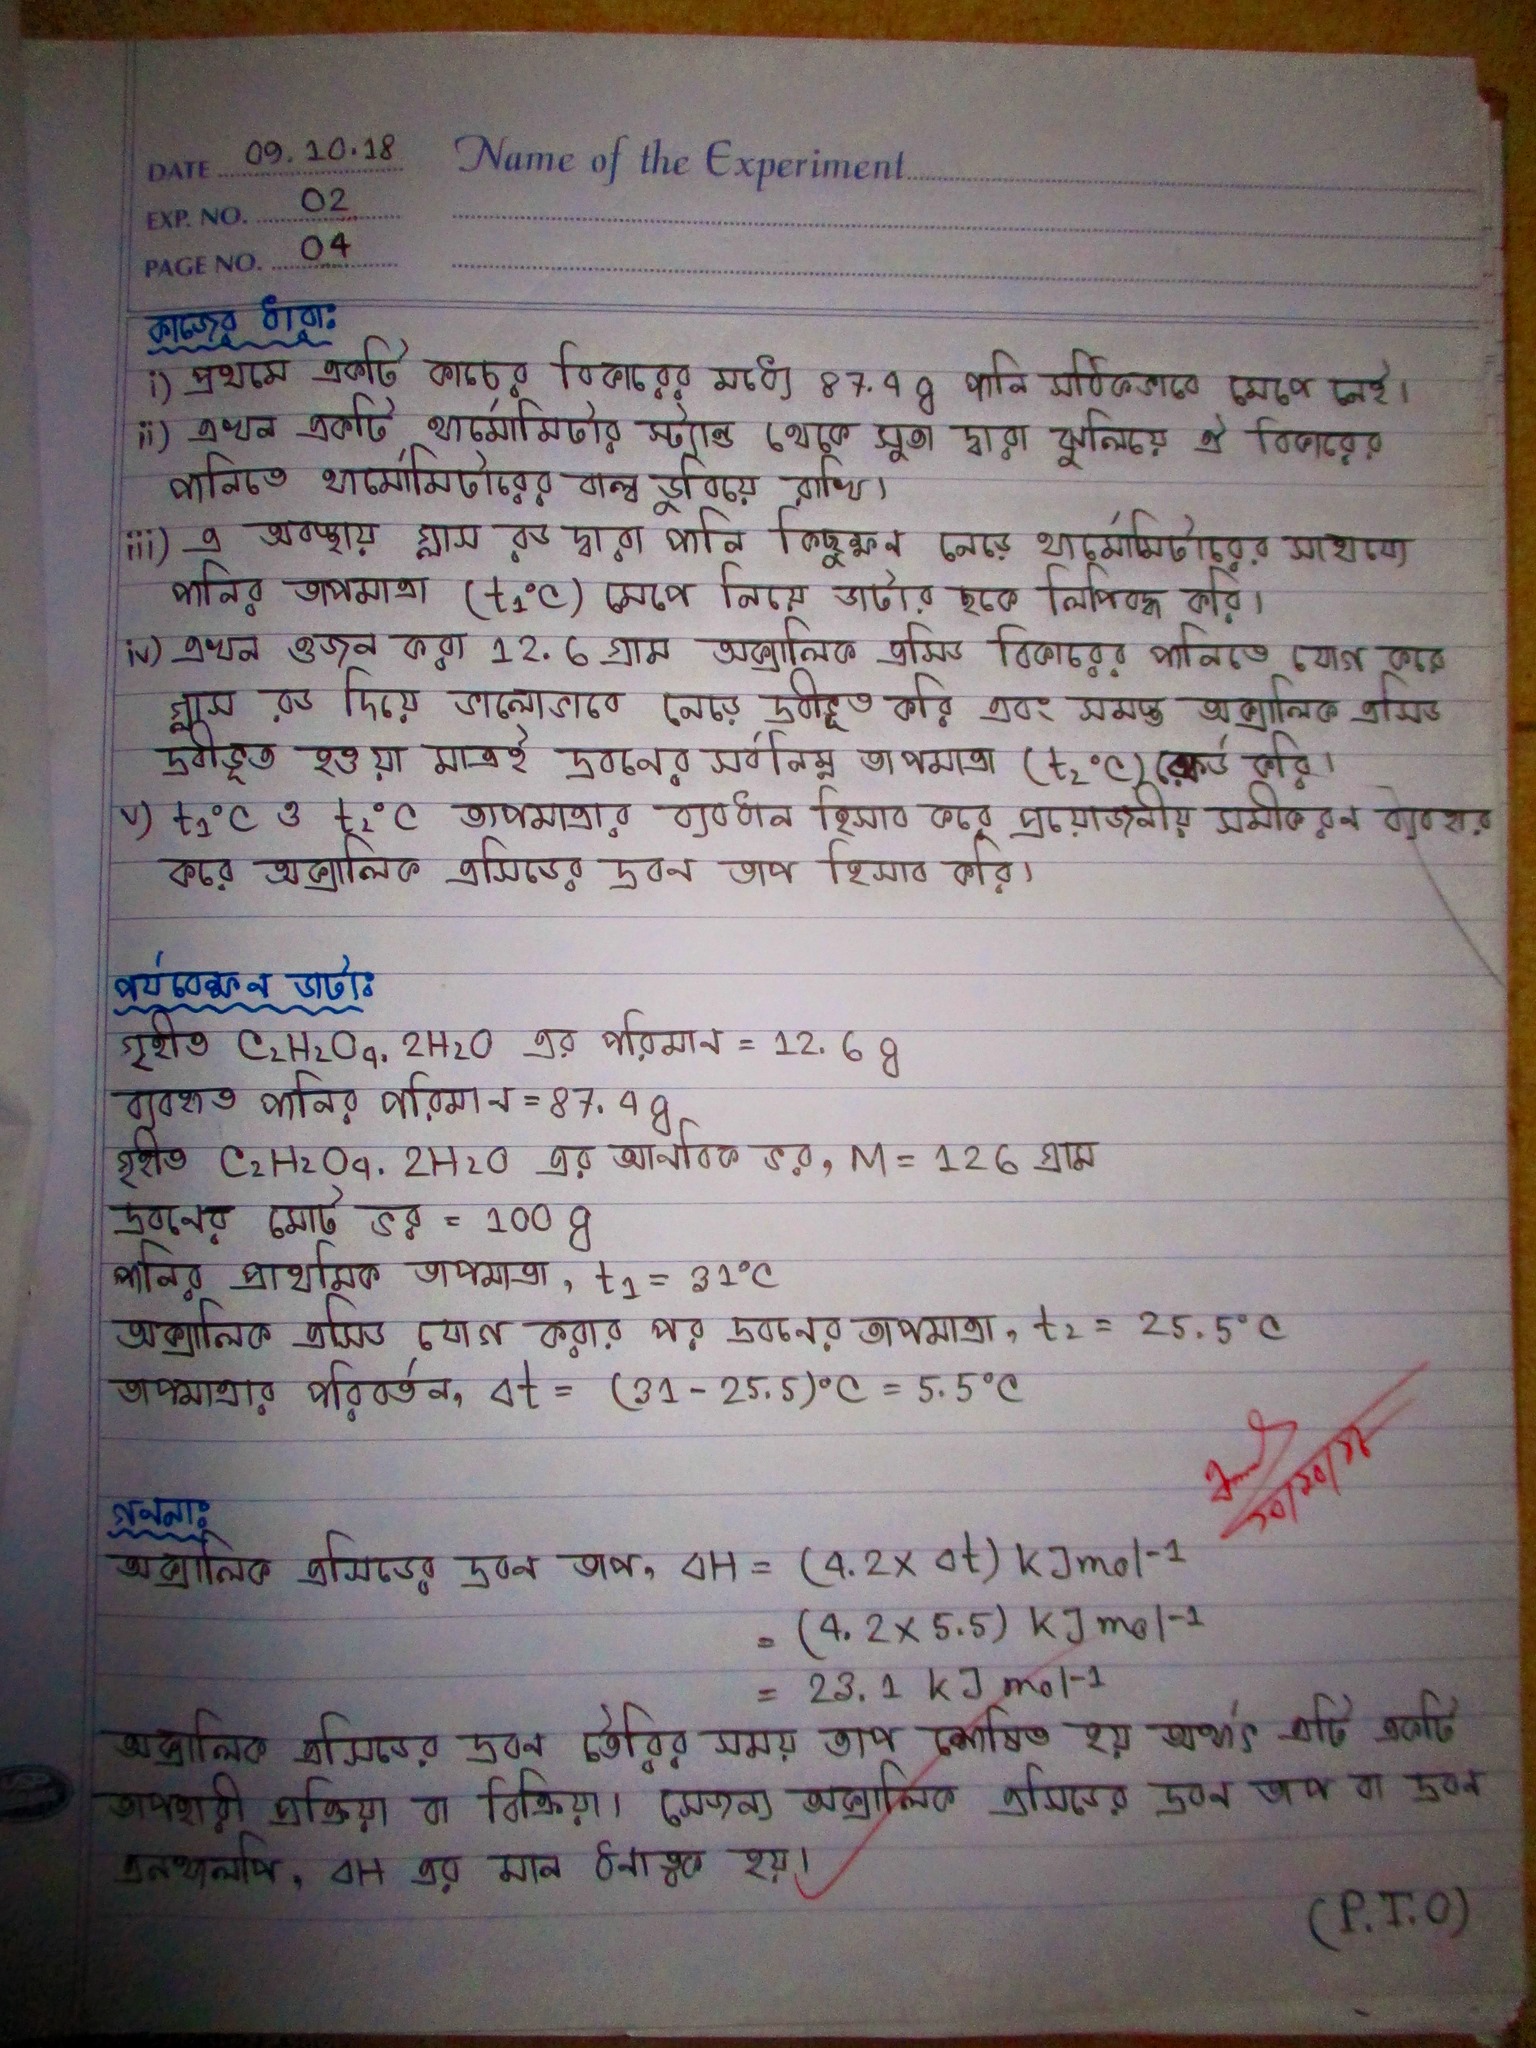 DATE 09.10.18 Name of the Experiment
EXP. NO. 02
PAGE NO. 04
কাজের ধারা:
i) প্রথমে একটি কাচের বিকারের মধ্যে 87.4 g পানি সঠিকভাবে মেপে নেই।
ii) এখন একটি থার্মোমিটার স্ট্যান্ড থেকে সুতা দ্বারা ঝুলিয়ে ঐ বিকারের
পানিতে থার্মোমিটারের বাল্ব ডুবিয়ে রাখি।
iii) এ অবস্থায় গ্লাস রড দ্বারা পানি কিছুক্ষন নেড়ে থার্মোমিটারের সাহায্যে
পানির তাপমাত্রা (t₁°C) মেপে নিয়ে ডাটার ছকে লিপিবদ্ধ করি।
iv) এখন ওজন করা 12.6 গ্রাম অক্সালিক এসিড বিকারের পানিতে যোগ করে
গ্লাস রড দিয়ে ভালোভাবে নেড়ে দ্রবীভূত করি এবং সমস্ত অক্সালিক এসিড
দ্রবীভূত হওয়া মাত্রই দ্রবনের সর্বনিম্ন তাপমাত্রা (t₂°C) রেকর্ড করি।
v) t₁°C ও t₂°C তাপমাত্রার ব্যবধান হিসাব করে প্রয়োজনীয় সমীকরন ব্যবহার
করে অক্সালিক এসিডের দ্রবন তাপ হিসাব করি।
পর্যবেক্ষন ডাটা:
গৃহীত C₂H₂O₄. 2H₂O এর পরিমান = 12.6 g
ব্যবহৃত পানির পরিমান = 87.4 g
গৃহীত C₂H₂O₄. 2H₂O এর আনবিক ভর, M = 126 গ্রাম
দ্রবনের মোট ভর = 100 g
পানির প্রাথমিক তাপমাত্রা, t₁ = 31°C
অক্সালিক এসিড যোগ করার পর দ্রবনের তাপমাত্রা, t₂ = 25.5°C
তাপমাত্রার পরিবর্তন, Δt = (31 - 25.5)°C = 5.5°C
১০/১০/১৮
গননা:
অক্সালিক এসিডের দ্রবন তাপ, ΔH = (4.2 × Δt) kJmol-1
= (4.2 × 5.5) kJ mol-1
= 23.1 kJ mol-1
অক্সালিক এসিডের দ্রবন তৈরির সময় তাপ শোষিত হয় অর্থাৎ এটি একটি
তাপহারী প্রক্রিয়া বা বিক্রিয়া। সেজন্য অক্সালিক এসিডের দ্রবন তাপ বা দ্রবন
এনথালপি, ΔH এর মান ধনাত্বক হয়।
(P.T.O)